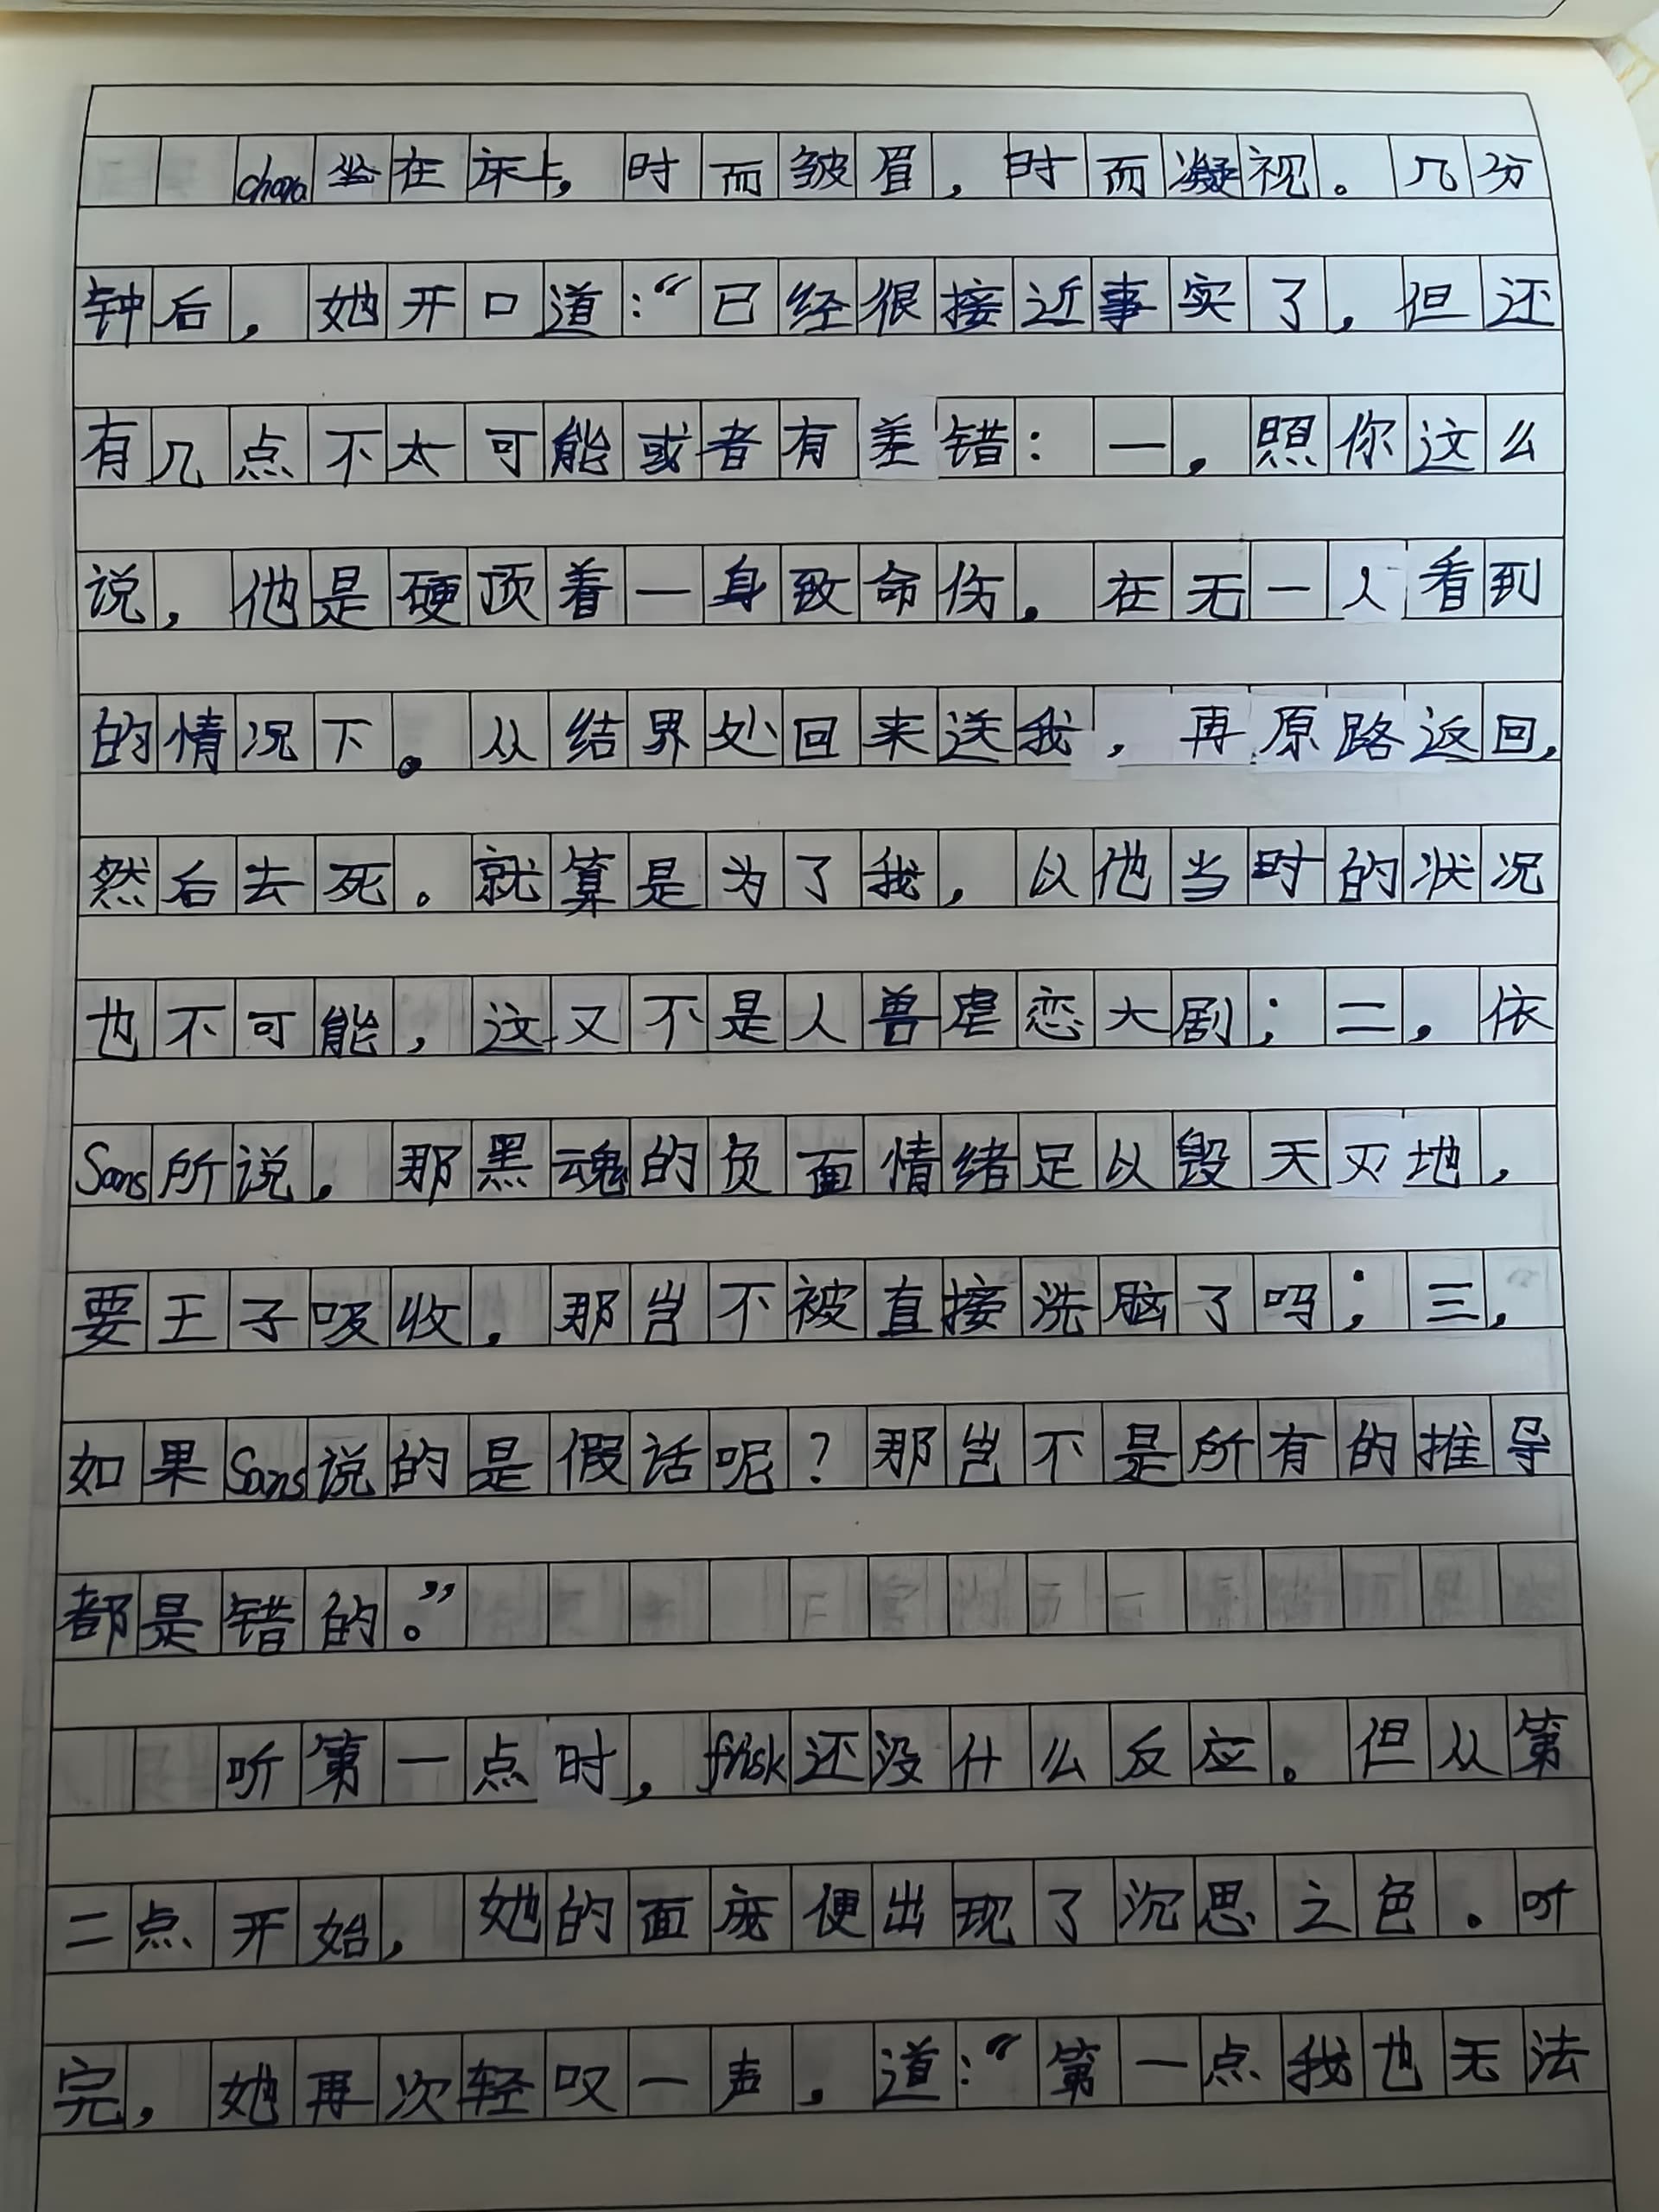 chara坐在床上，时而皱眉，时而凝视。几分
钟后，她开口道：“已经很接近事实了，但还
有几点不太可能或者有差错：一，照你这么
说，他是硬顶着一身致命伤，在无一人看到
的情况下。从结界处回来送我，再原路返回，
然后去死。就算是为了我，以他当时的状况
也不可能，这又不是人兽虐恋大剧；二，依
Sans所说，那黑魂的负面情绪足以毁天灭地，
要王子吸收，那岂不被直接洗脑了吗；三，
如果Sans说的是假话呢？那岂不是所有的推导
都是错的。”
听第一点时，frisk还没什么反应。但从第
二点开始，她的面庞便出现了沉思之色。听
完，她再次轻叹一声，道：“第一点我也无法